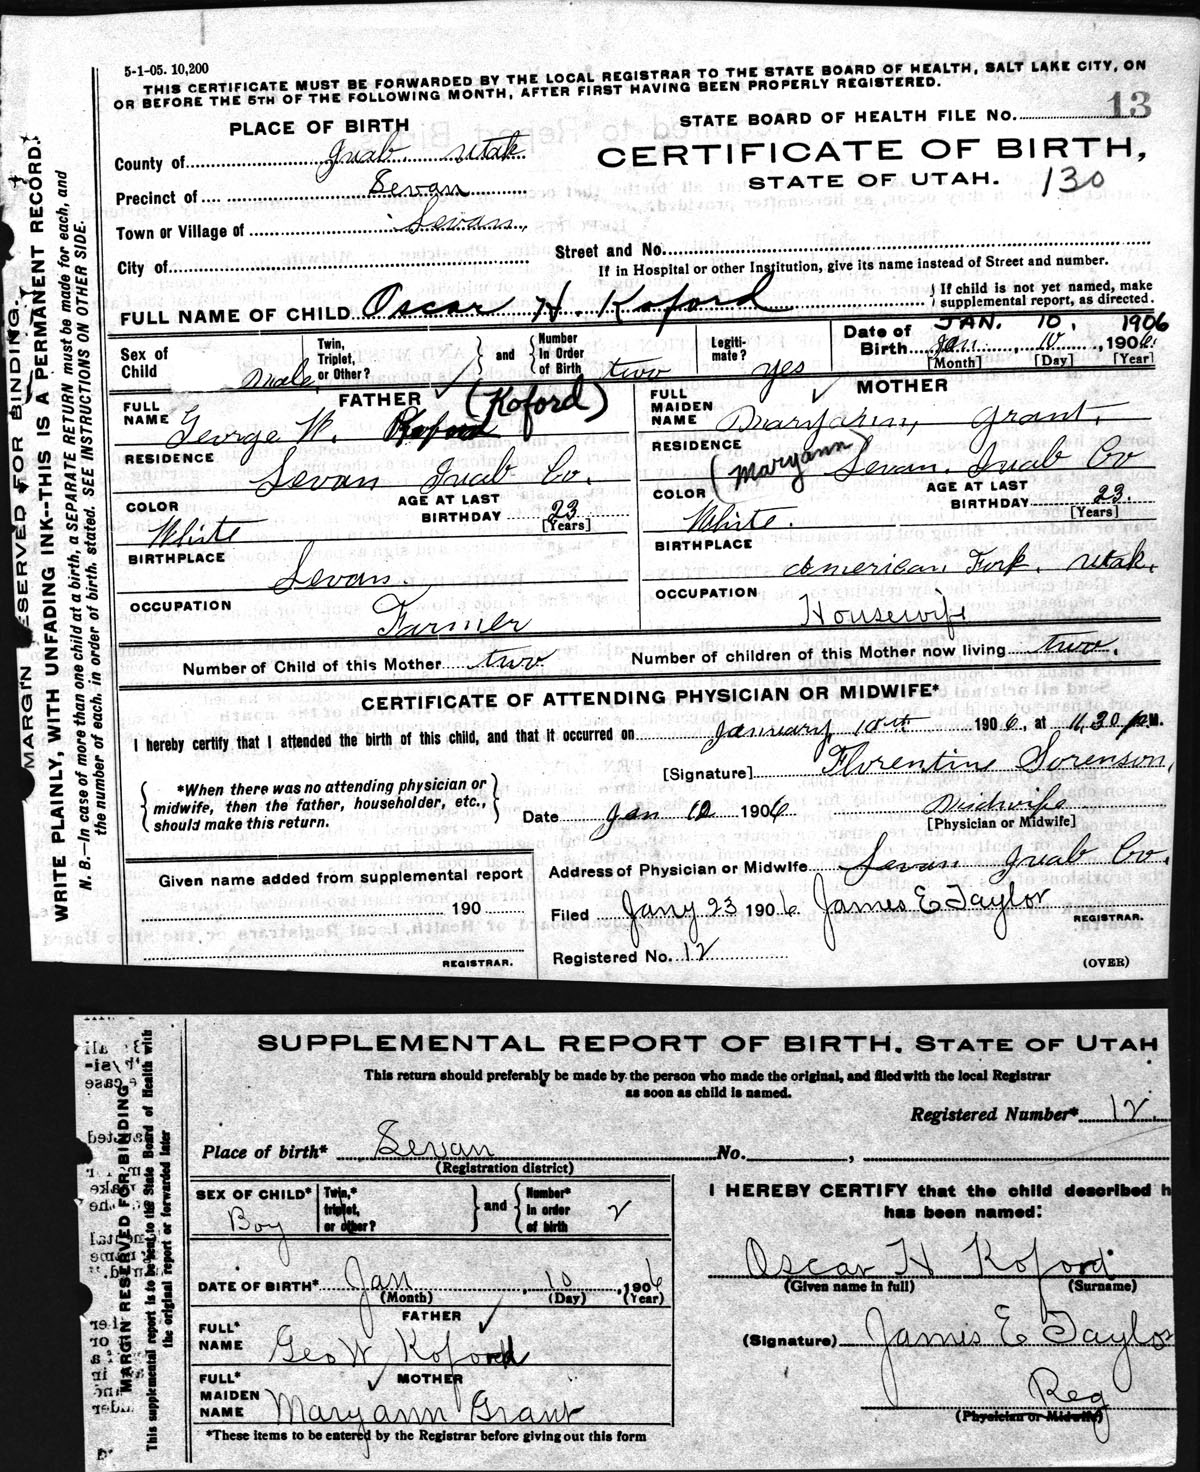 5-1-05. 10,200
THIS CERTIFICATE MUST BE FORWARDED BY THE LOCAL REGISTRAR TO THE STATE BOARD OF HEALTH, SALT LAKE CITY, ON
OR BEFORE THE 5TH OF THE FOLLOWING MONTH, AFTER FIRST HAVING BEEN PROPERLY REGISTERED.
STATE BOARD OF HEALTH FILE NO. 13
PLACE OF BIRTH
CERTIFICATE OF BIRTH,
STATE OF UTAH. 130
County of Juab Utah
Precinct of Levan
Town or Village of Levan
City of
Street and No.
If in Hospital or other Institution, give its name instead of Street and number.
FULL NAME OF CHILD Oscar H. Koford
If child is not yet named, make
supplemental report, as directed.
JAN. 10. 1906
Sex of Child Male
Twin, Triplet, or Other?
and
Number In Order of Birth two
Legiti- mate? yes
Date of Birth Jan 10, 1906
[Month] [Day] [Year]
FATHER
FULL NAME George W. Koford (Koford)
RESIDENCE Levan Juab Co.
COLOR White
AGE AT LAST BIRTHDAY 23 [Years]
BIRTHPLACE Levan.
OCCUPATION Farmer
MOTHER
FULL MAIDEN NAME Maryann Grant. (Maryann)
RESIDENCE Levan. Juab Co
COLOR White.
AGE AT LAST BIRTHDAY 23. [Years]
BIRTHPLACE American Fork, Utah.
OCCUPATION Housewife
Number of Child of this Mother two
Number of children of this Mother now living two.
CERTIFICATE OF ATTENDING PHYSICIAN OR MIDWIFE*
I hereby certify that I attended the birth of this child, and that it occurred on January 10th 1906, at 11,30 P.M.
[Signature] Florentine Sorenson,
*When there was no attending physician or
midwife, then the father, householder, etc.,
should make this return.
Date Jan 12 1906 Midwife
[Physician or Midwife]
Address of Physician or Midwife Levan Juab Co.
Given name added from supplemental report
190
REGISTRAR.
Filed Jany 23 1906 James E Taylor
REGISTRAR.
Registered No. 12
(OVER)
MARGIN RESERVED FOR BINDING.
WRITE PLAINLY, WITH UNFADING INK--THIS IS A PERMANENT RECORD.
N. B.—In case of more than one child at a birth, a SEPARATE RETURN must be made for each, and
the number of each, in order of birth, stated. SEE INSTRUCTIONS ON OTHER SIDE.
SUPPLEMENTAL REPORT OF BIRTH. STATE OF UTAH
This return should preferably be made by the person who made the original, and filed with the local Registrar
as soon as child is named.
Registered Number* 12.
Place of birth* Levan No. ,
(Registration district)
SEX OF CHILD* Boy
Twin,* triplet, or other?
and
Number* in order of birth 2
I HEREBY CERTIFY that the child described h
has been named:
DATE OF BIRTH* Jan 10, 1906
(Month) (Day) (Year)
Oscar H Koford
(Given name in full) (Surname)
FATHER
FULL* NAME Geo W Koford
(Signature) James E Taylo
Reg
(Physician or Midwife)
MOTHER
FULL* MAIDEN NAME Maryann Grant
*These items to be entered by the Registrar before giving out this form
MARGIN RESERVED FOR BINDING
This supplemental report is to be sent to the State Board of Health with
the original report or forwarded later